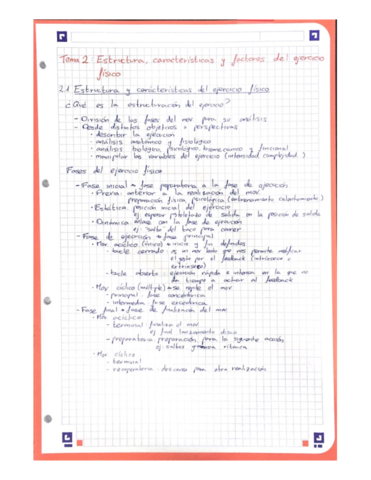 Tema 2: Estructura, características y factores del ejercicio
físico
2.1 Estructura y características del ejercicio físico
¿Qué es la estructuración del ejercicio?
- División de las fases del mov para su análisis
- Desde distintos objetivos o perspectivas
· describir la ejecución
· análisis anatómico y fisiológico
· análisis biológico, psicológico, biomecánico y funcional
· manipular las variables del ejercicio (intensidad, complejidad)
Fases del ejercicio físico
- Fase inicial → fase preparatoria a la fase de ejecución
· Previa: anterior a la realización del mov
preparación física, psicológica (entrenamiento calentamiento)
· Estática: posición inicial del ejercicio
ej esperar pistoletazo de salida en la posición de salida
· Dinámica: enlace con la fase de ejecución
ej salto del taco para correr
- Fase de ejecución → fase principal
· Mov acíclico (único) → inicio y fin definidos
- bucle cerrado: es un mov lento que nos permite modificar
el gesto por el feedback (intrínseco o
extrínseco)
- bucle abierto: ejecución rápida e intensa en la que no
da tiempo a activar el feedback
· Mov cíclico (múltiple) → se repite el mov
- principal: fase concéntrica
- intermedia: fase excéntrica
- Fase final → fase de finalización del mov
· Mov acíclico
- terminal: finaliza el mov
ej final lanzamiento disco
- preparatoria: preparación para la siguiente acción
ej saltos gimnasia rítmica
· Mov cíclico
- terminal
- recuperatoria: descanso para otra realización